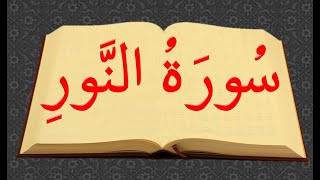 سُورَةُ النَّورِ